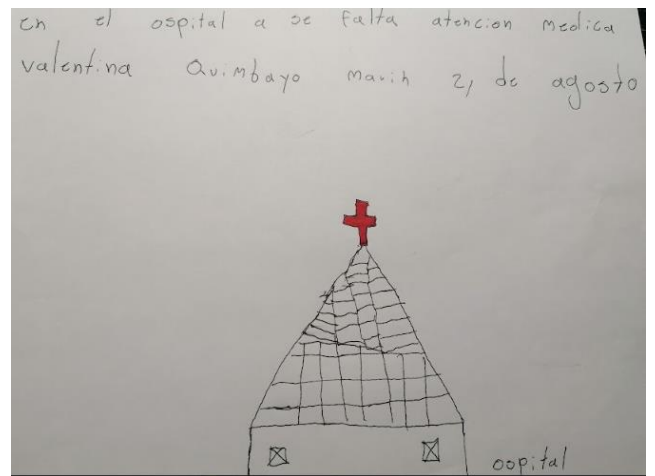 en el ospital a se falta atencion medica
valentina Quimbayo marin 2, de agosto
ospital